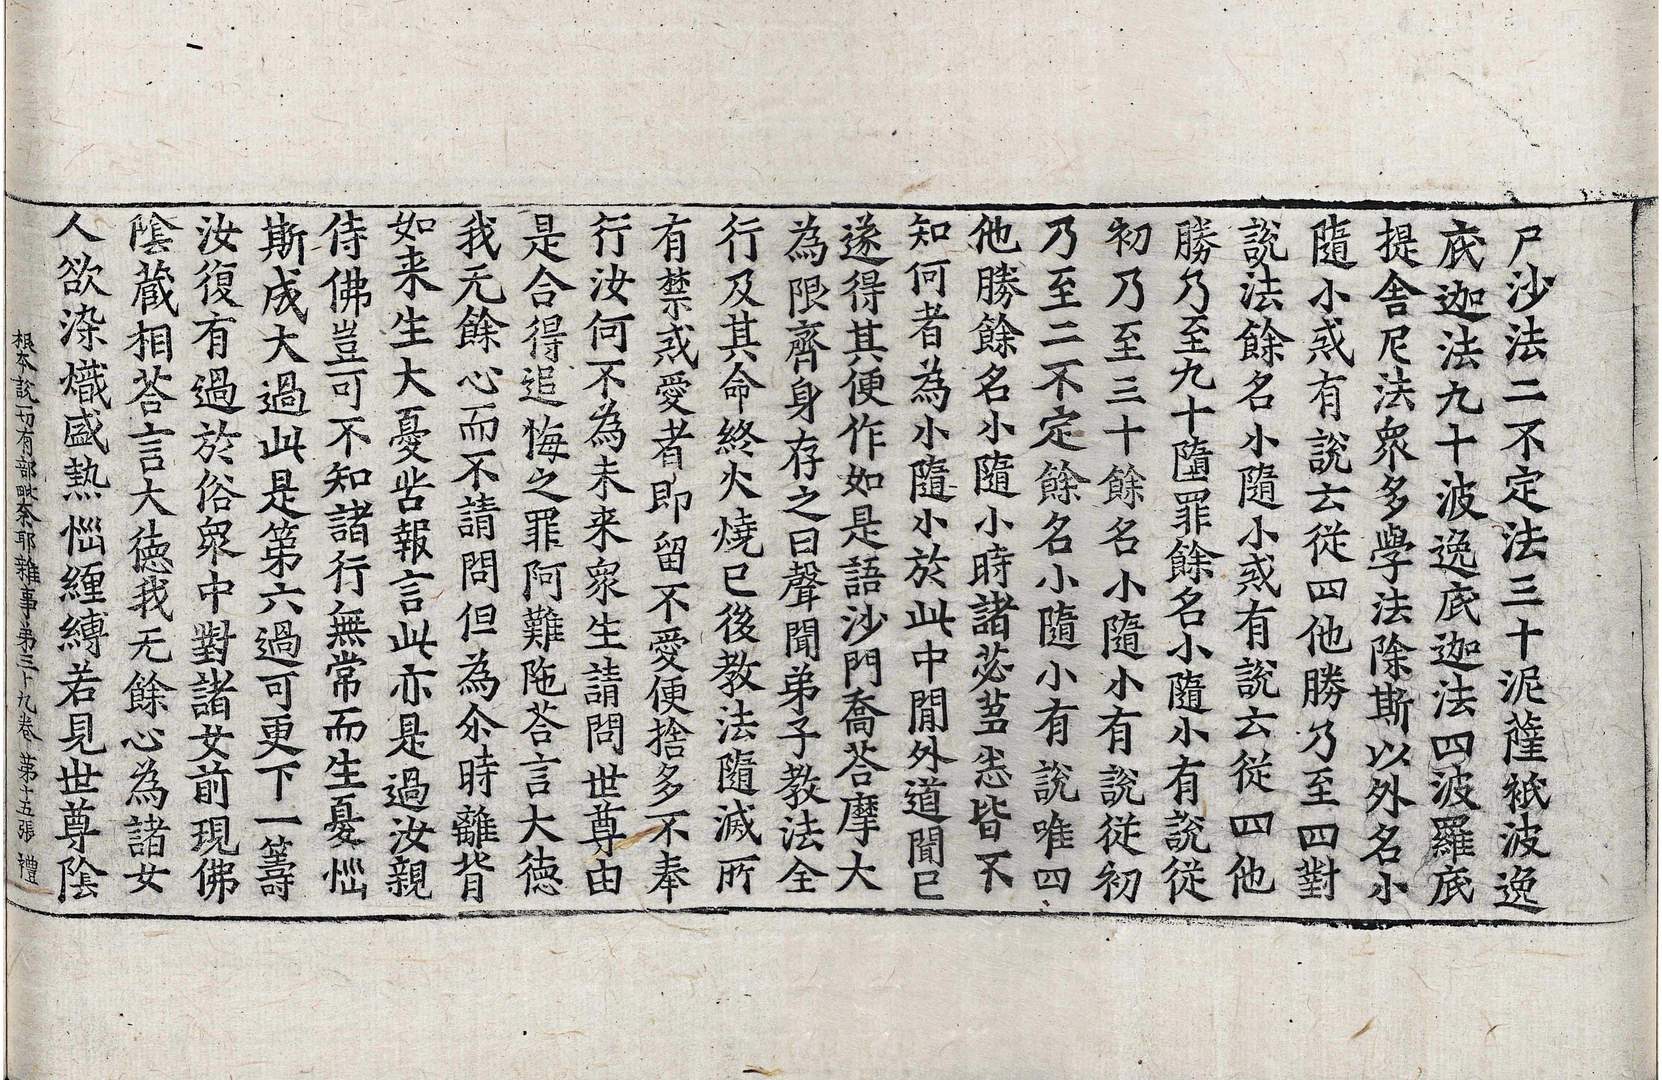 尸沙法二不定法三十泥薩祇波逸
底迦法九十波逸底迦法四波羅底
提舍尼法衆多學法除斯以外名小
隨小或有說云從四他勝乃至四對
說法餘名小隨小或有說云從四他
勝乃至九十墮罪餘名小隨小有說從
初乃至三十餘名小隨小有說從初
乃至二不定餘名小隨小有說唯四
他勝餘名小隨小時諸苾芻悉皆不
知何者為小隨小於此中閒外道聞已
遂得其便作如是語沙門喬荅摩大
為限齊身存之日聲聞弟子教法全
行及其命終火燒已後教法隨滅所
有禁戒愛者即留不愛便捨多不奉
行汝何不為未来衆生請問世尊由
是合得追悔之罪阿難陁荅言大德
我无餘心而不請問但為尒時離背
如来生大憂苦報言此亦是過汝親
侍佛豈可不知諸行無常而生憂惱
斯成大過此是第六過可更下一籌
汝復有過於俗衆中對諸女前現佛
陰藏相荅言大德我无餘心為諸女
人欲染熾盛熱惱纏縛若見世尊陰
根本說一切有部毗奈耶雜事第三十九卷 第十五張 禮